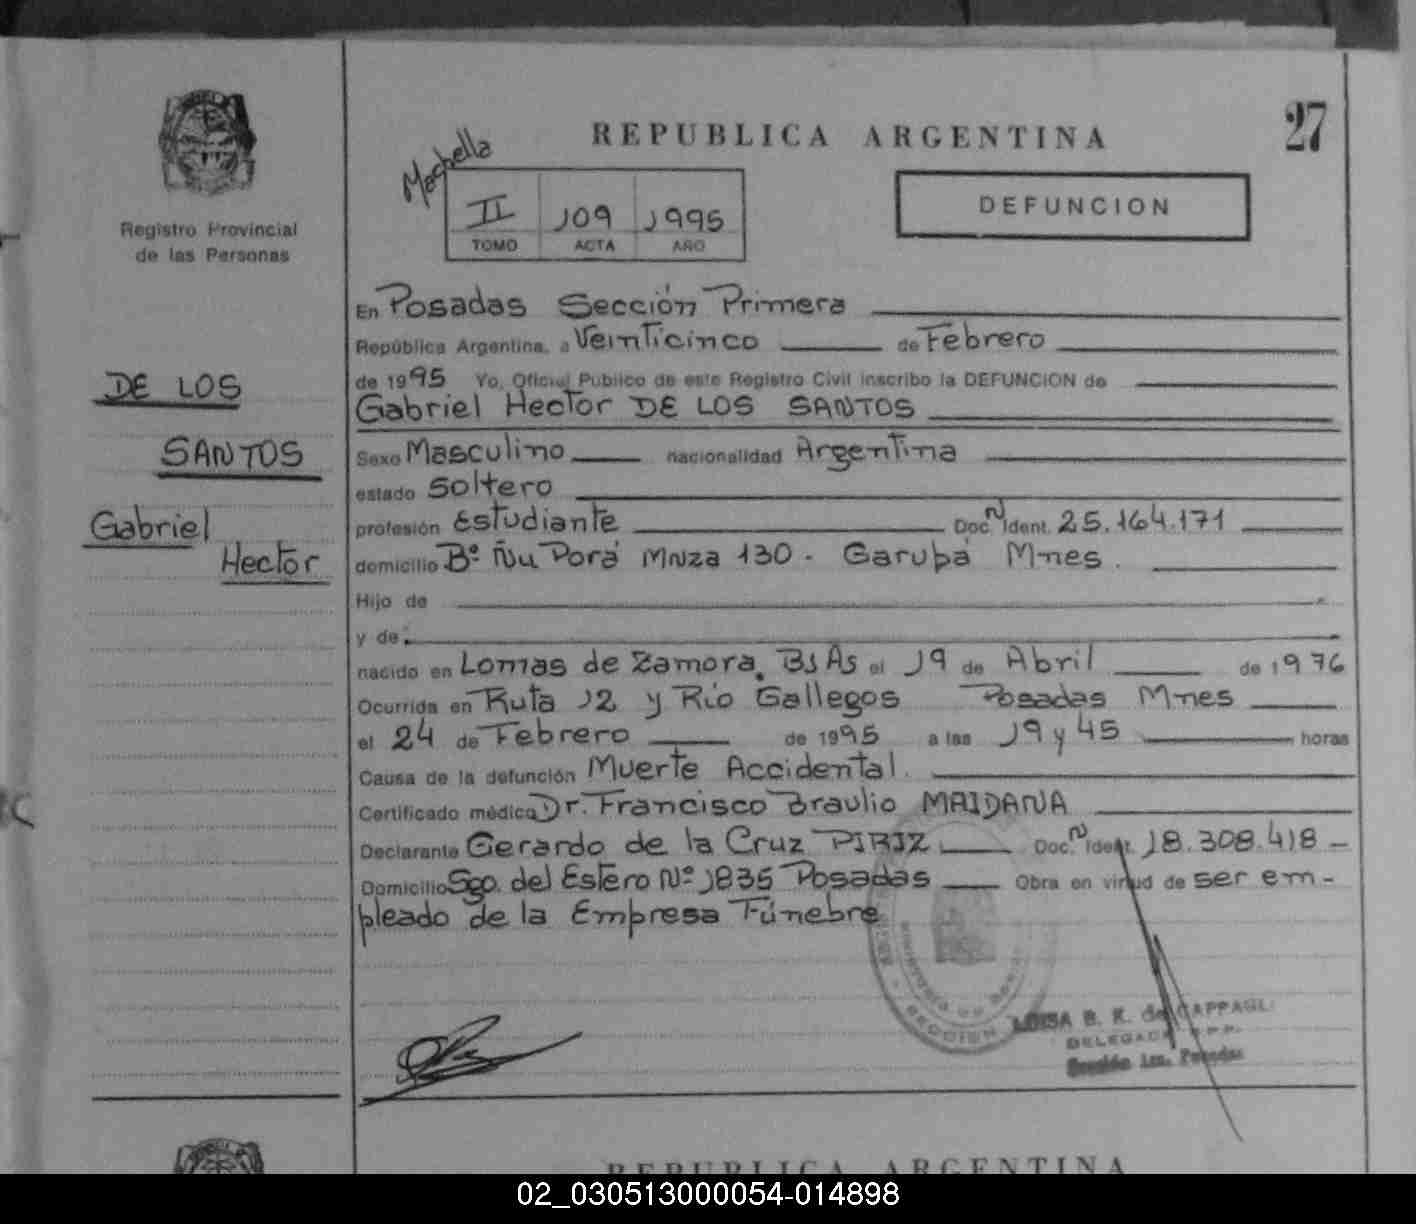 27
REPUBLICA ARGENTINA
Registro Provincial
de las Personas
II 109 1995
TOMO ACTA AÑO
DEFUNCION
DE LOS
SANTOS
Gabriel
Hector
En Posadas Sección Primera
República Argentina, a Veinticinco de Febrero
de 1995 Yo, Oficial Publico de este Registro Civil inscribo la DEFUNCION de
Gabriel Hector DE LOS SANTOS
Sexo Masculino nacionalidad Argentina
estado Soltero
profesión Estudiante Doc. N Ident. 25.164.171
domicilio Bº Ñu Porá Mnza 130 - Garupá Mnes.
Hijo de
y de
nacido en Lomas de Zamora. Bs As el 19 de Abril de 1976
Ocurrida en Ruta 12 y Río Gallegos Posadas Mnes
el 24 de Febrero de 1995 a las 19 y 45 horas
Causa de la defunción Muerte Accidental.
Certificado médico Dr. Francisco Braulio MAIDANA
Declarante Gerardo de la Cruz PIRIZ Doc. N Ident. 18.308.418 -
Domicilio Sgo. del Estero Nº 1835 Posadas Obra en virtud de ser em-
pleado de la Empresa Fúnebre
LUISA B. R. de CAPPAGLI
DELEGADA R.P.P.
Sección 1ra. Posadas
REPUBLICA ARGENTINA
02_030513000054-014898